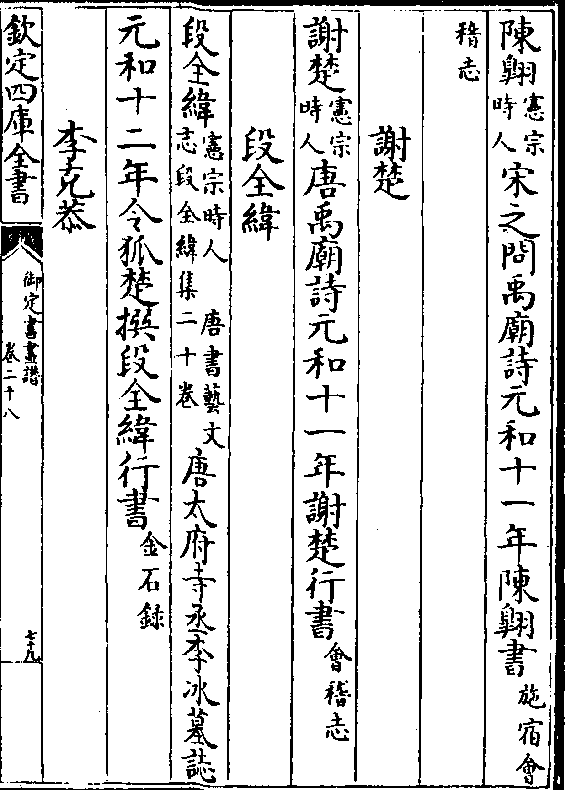 陳翺憲宗時人宋之問禹廟詩元和十一年陳翺書施宿會
稽志
謝楚
謝楚憲宗時人唐禹廟詩元和十一年謝楚行書會稽志
段全緯
段全緯憲宗時人唐書藝文志段全緯集二十卷唐太府寺丞李冰墓誌
元和十二年令狐楚撰段全緯行書金石録
李克恭
欽定四庫全書
御定書畫譜
卷二十八
七九